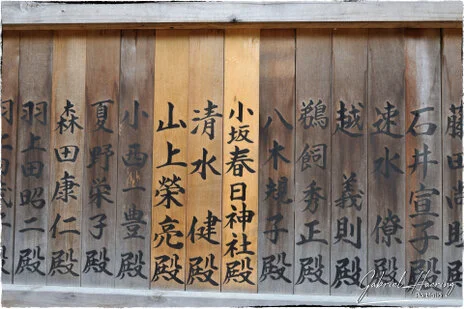 藤田尚
石井宣子殿
速水僚殿
越義則殿
鵜飼秀正殿
八木規子殿
小坂春日神社殿
清水健殿
山上榮亮殿
小西一豊殿
夏野栄子殿
森田康仁殿
羽上田昭二殿
Gabriel